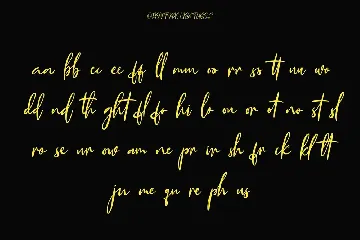 aa bb cc ee ff ll mm oo rr ss tt uu wo
dd nd th ght fl fo hi lo on or ot no st sl
ro se ur ow am ne pr ir sh fr ck kl lt
ju me qu re ph us